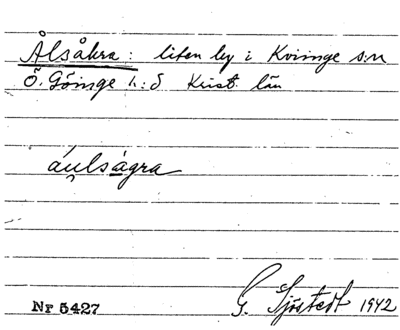 Ålsåkra: liten by i Kviinge s:n
Ö. Göinge h:d Krist. län
áu̯lságra
Nr 5427 G. Sjöstedt 1942